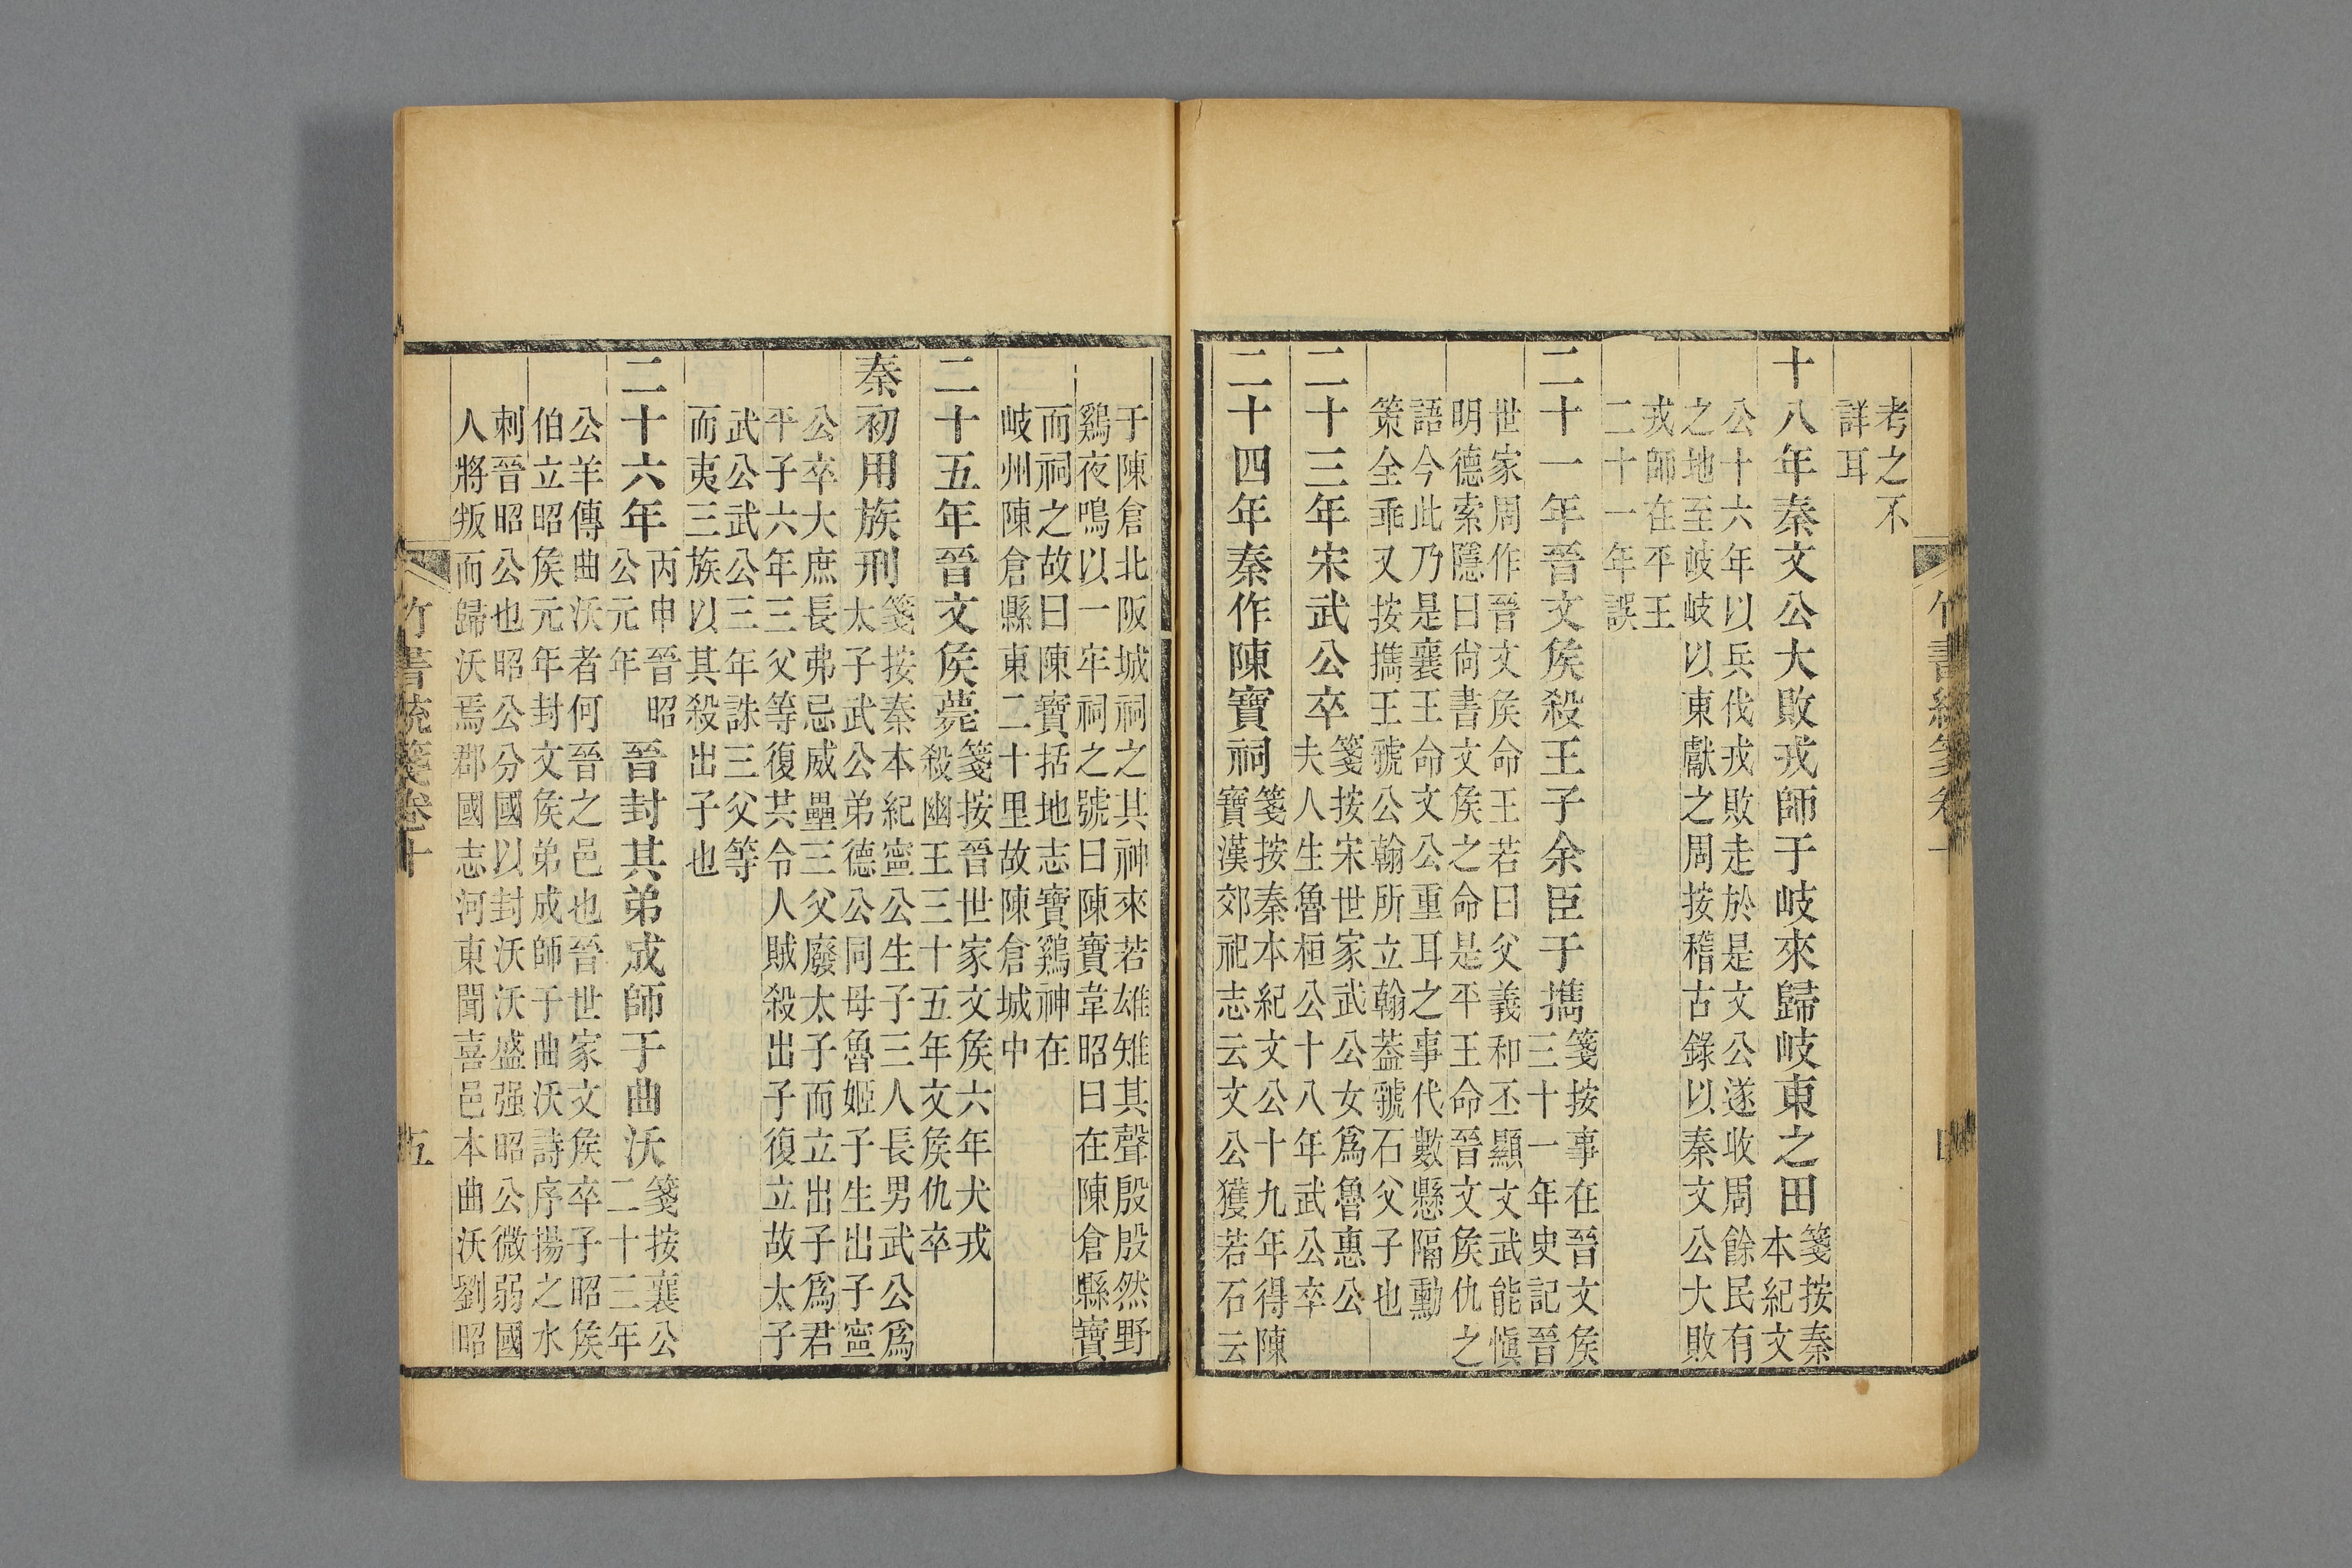 考之不
詳耳
十八年秦文公大敗戎師于岐來歸岐東之田
箋按秦
本紀文
公十六年以兵伐戎敗走於是文公遂收周餘民有
之地至岐岐以東獻之周按稽古錄以秦文公大敗
戎師在平王
二十一年誤
二十一年晉文矦殺王子余臣于攜
箋按事在晉文矦
三十一年史記晉
世家周作晉文矦命王若曰父義和丕顯文武能愼
明德索隱曰尙書文矦之命是平王命晉文矦仇之
語今此乃是襄王命文公重耳之事代數懸隔勳
策全乖又按攜王虢公翰所立翰葢虢石父子也
二十三年宋武公卒
箋按宋世家武公女爲魯惠公
夫人生魯桓公十八年武公卒
二十四年秦作陳寶祠
箋按秦本紀文公十九年得陳
寶漢郊祀志云文公獲若石云
于陳倉北阪城祠之其神來若雄雉其聲殷殷然野
鷄夜鳴以一牢祠之號曰陳寶韋昭曰在陳倉縣寶
而祠之故曰陳寶括地志寶鷄神在
岐州陳倉縣東二十里故陳倉城中
二十五年晉文矦薨
箋按晉世家文矦六年犬戎
殺幽王三十五年文矦仇卒
秦初用族刑
箋按秦本紀寧公生子三人長男武公爲
太子武公弟德公同母魯姬子生出子寧
公卒大庶長弗忌威壘三父廢太子而立出子爲君
平子六年三父等復共令人賊殺出子復立故太子
武公武公三年誅三父等
而夷三族以其殺出子也
二十六年
丙申晉昭
公元年
晉封其弟成師于曲沃
箋按襄公
二十三年
公羊傳曲沃者何晉之邑也晉世家文矦卒子昭矦
伯立昭矦元年封文矦弟成師于曲沃詩序揚之水
刺晉昭公也昭公分國以封沃沃盛强昭公微弱國
人將叛而歸沃焉郡國志河東聞喜邑本曲沃劉昭
竹書統箋卷十
五